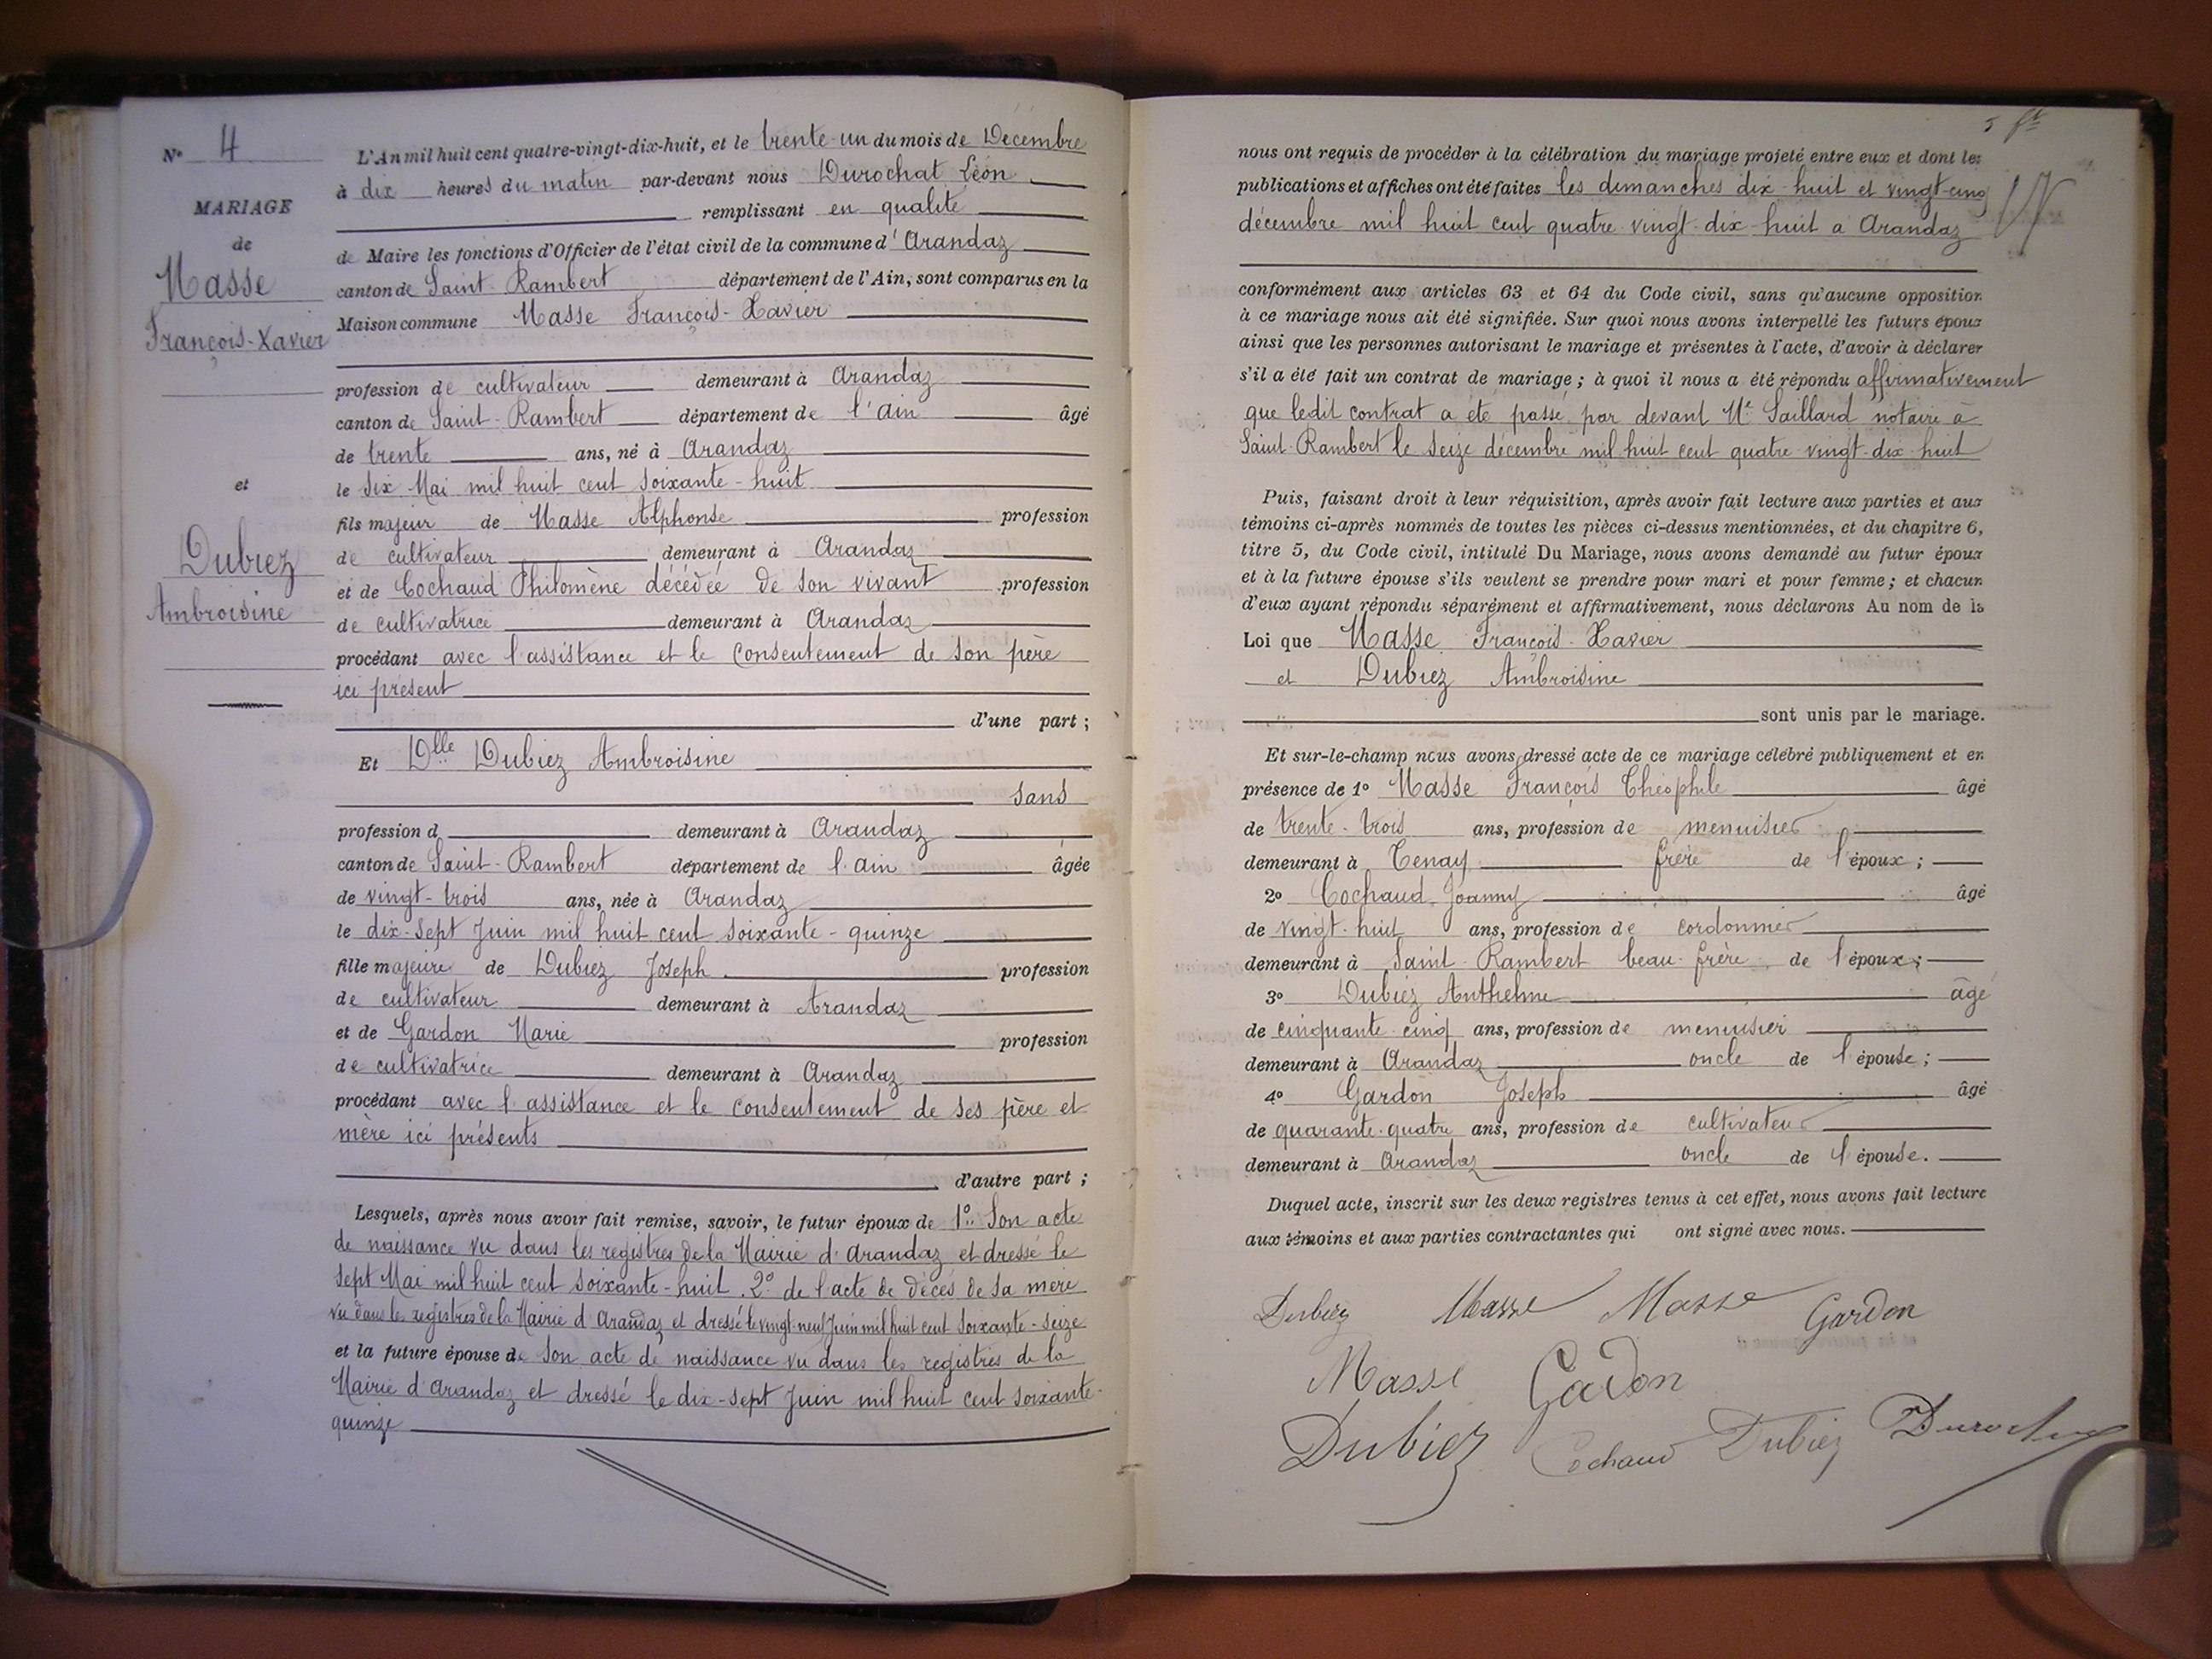 N° 4
MARIAGE
de
Masse
François-Xavier
et
Dubiez
Ambroisine
L'An mil huit cent quatre-vingt-dix-huit, et le trente-un du mois de Décembre
à dix heures du matin par-devant nous Durochat Léon
remplissant en qualité
de Maire les fonctions d'Officier de l'état civil de la commune d'Arandaz
canton de Saint-Rambert département de l'Ain, sont comparus en la
Maison commune Masse François-Xavier
profession de cultivateur demeurant à Arandaz
canton de Saint-Rambert département de l'Ain âgé
de trente ans, né à Arandaz
le six Mai mil huit cent soixante-huit
fils majeur de Masse Alphonse profession
de cultivateur demeurant à Arandaz
et de Cochaud Philomène décédée de son vivant profession
de cultivatrice demeurant à Arandaz
procédant avec l'assistance et le consentement de son père
ici présent
d'une part ;
Et Dlle Dubiez Ambroisine
sans
profession d demeurant à Arandaz
canton de Saint-Rambert département de l'Ain âgée
de vingt-trois ans, née à Arandaz
le dix-sept Juin mil huit cent soixante-quinze
fille majeure de Dubiez Joseph profession
de cultivateur demeurant à Arandaz
et de Gardon Marie profession
de cultivatrice demeurant à Arandaz
procédant avec l'assistance et le consentement de ses père et
mère ici présents
d'autre part ;
Lesquels, après nous avoir fait remise, savoir, le futur époux de 1° Son acte
de naissance vu dans les registres de la Mairie d'Arandaz et dressé le
sept Mai mil huit cent soixante-huit. 2° de l'acte de décès de sa mère
vu dans les registres de la Mairie d'Arandaz et dressé le vingt-neuf Juin mil huit cent soixante-seize
et la future épouse de son acte de naissance vu dans les registres de la
Mairie d'Arandaz et dressé le dix-sept Juin mil huit cent soixante-
quinze
nous ont requis de procéder à la célébration du mariage projeté entre eux et dont les
publications et affiches ont été faites les dimanches dix-huit et vingt-cinq
décembre mil huit cent quatre-vingt-dix-huit a Arandaz
conformément aux articles 63 et 64 du Code civil, sans qu'aucune opposition
à ce mariage nous ait été signifiée. Sur quoi nous avons interpellé les futurs époux
ainsi que les personnes autorisant le mariage et présentes à l'acte, d'avoir à déclarer
s'il a été fait un contrat de mariage ; à quoi il nous a été répondu affirmativement
que ledit contrat a été passé par devant Me Saillard notaire à
Saint-Rambert le seize décembre mil huit cent quatre-vingt-dix-huit
Puis, faisant droit à leur réquisition, après avoir fait lecture aux parties et aux
témoins ci-après nommés de toutes les pièces ci-dessus mentionnées, et du chapitre 6,
titre 5, du Code civil, intitulé Du Mariage, nous avons demandé au futur époux
et à la future épouse s'ils veulent se prendre pour mari et pour femme ; et chacun
d'eux ayant répondu séparément et affirmativement, nous déclarons Au nom de la
Loi que Masse François-Xavier
et Dubiez Ambroisine
sont unis par le mariage.
Et sur-le-champ nous avons dressé acte de ce mariage célébré publiquement et en
présence de 1° Masse François Théophile âgé
de trente-trois ans, profession de menuisier
demeurant à Tenay frère de l'époux ;
2° Cochaud Joanny âgé
de vingt-huit ans, profession de cordonnier
demeurant à Saint-Rambert beau-frère de l'époux ;
3° Dubiez Anthelme âgé
de cinquante-cinq ans, profession de menuisier
demeurant à Arandaz oncle de l'épouse ;
4° Gardon Joseph âgé
de quarante-quatre ans, profession de cultivateur
demeurant à Arandaz oncle de l'épouse.
Duquel acte, inscrit sur les deux registres tenus à cet effet, nous avons fait lecture
aux témoins et aux parties contractantes qui ont signé avec nous.
Dubiez Masse Masse Gardon
Masse Gardon
Dubiez Cochaud Dubiez Durochat